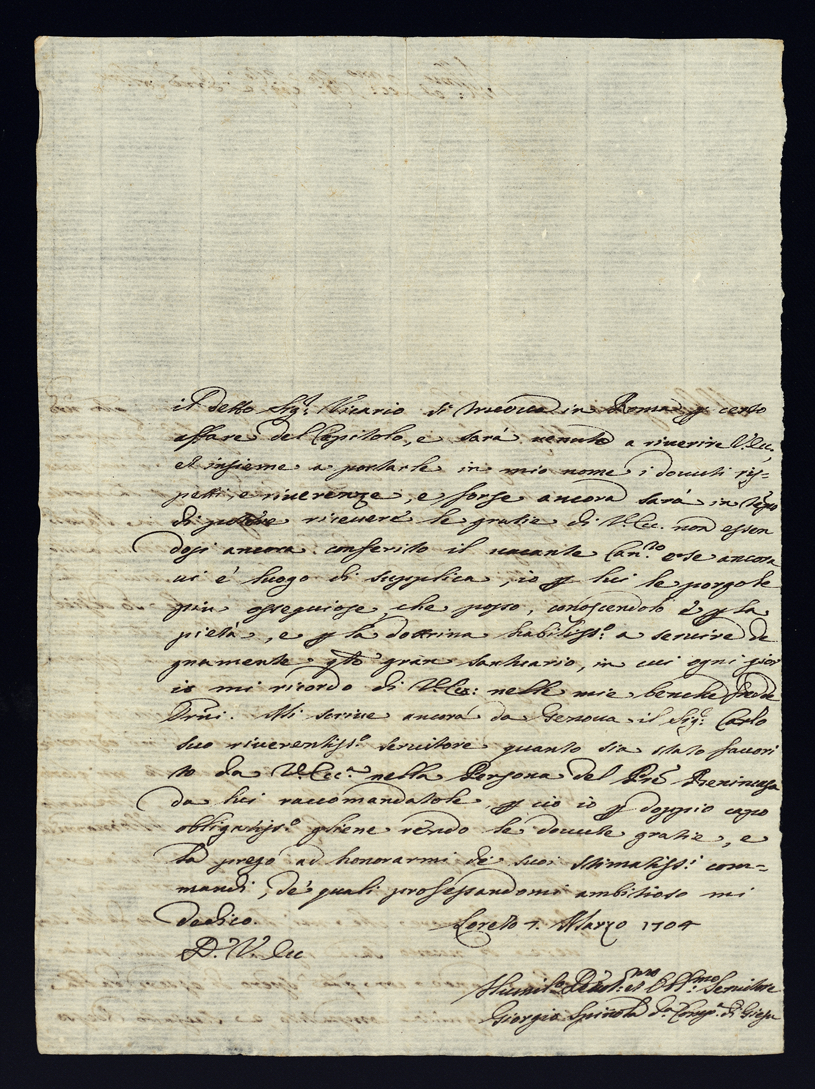 il detto Sig.r Vicario si trova in Roma p certo
affare del Capitolo, e sarà venuto a riverire V. Ecc.
et insieme a portarle in mio nome i dovuti ris=
petti, e riverenze, e forse ancora sarà in tempo
di potere ricevere le gratie di V. Ecc. non essen
dosi ancora conferito il vacante Can.to e se ancora
vi è luogo di supplica, io p lui le porgo le
più ossequiose, che posso, conoscendolo e p la
pietà, e p la dottrina habiliss.o a servire de
gnamente qto gran santuario, in cui ogni gior
no mi ricordo di V. Ecc: nelle mie benche fredde
Mi scrive ancora da Genova il Sig.r Carlo
suo riverentiss.o servitore quanto sia stato favori
to da V. Ecc.a nella Persona del Benincasa
da lui raccomandatole, p ciò io p doppio capo
obligatiss.o gliene rendo le dovute gratie, e
la prego ad honorarmi de suoi stimatiss.i com=
mandi, de quali professandomi ambitioso mi
dedico.
Loreto 1. Marzo 1704
D. V. Ecc
Humil.o Devot.mo et Obl.mo Servitore
Giorgio Spinola d.a Comp.a di Giesu